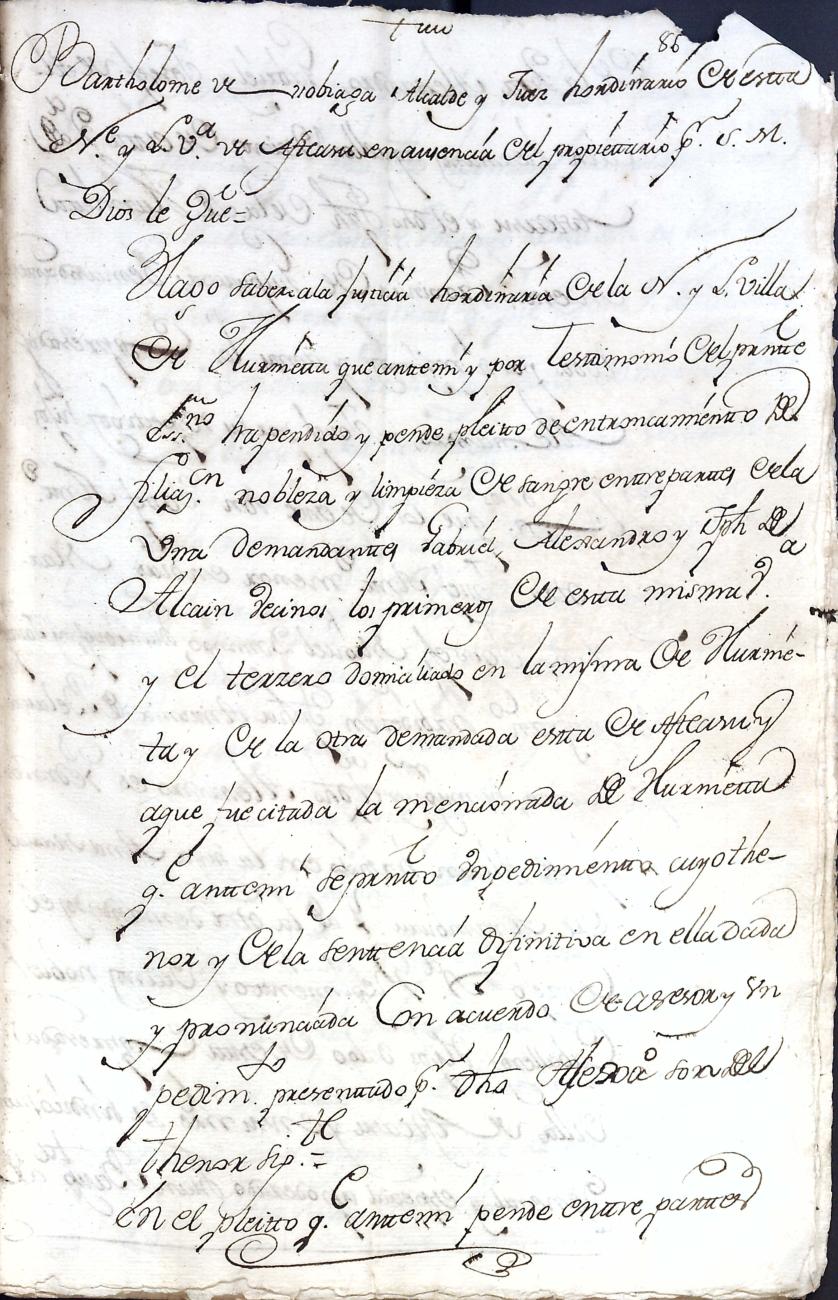 86
Bartholome de nobiaga Alcalde y Juez hordinario de esta
N.e y L. V.a de Asteasu en ausencia del propiettario p.r S. M.
Dios le Gue=
Hago saber a la justicia hordinaria de la N. y L. Villa
de Hurnietta que antte mi y por Testimonio del prntte
Ess.no ha pendido y pende pleitto de entroncamientto de
filiaz.on nobleza y limpieza de sangre entre parttes de la
Una demandanttes Gabriel, Alessandro y Jph de
Alcain vezinos los primeros de esta misma V.a
y el terzero domiciliado en la misma de Hurnie-
ta y de la otra demandada esta de Asteasu y
a que fue citada la mencionada de Hurnietta
q.e antte mi se prntto Un pedimientto cuyo the-
nor y de la senttencia difinitiva en ella dada
y pronunciada Con acuerdo de asesor y Un
pedim.to presenttado p.r dho Alesandro son del
thenor sig.tte=
En el pleitto q.e antte mi pende entre parttes